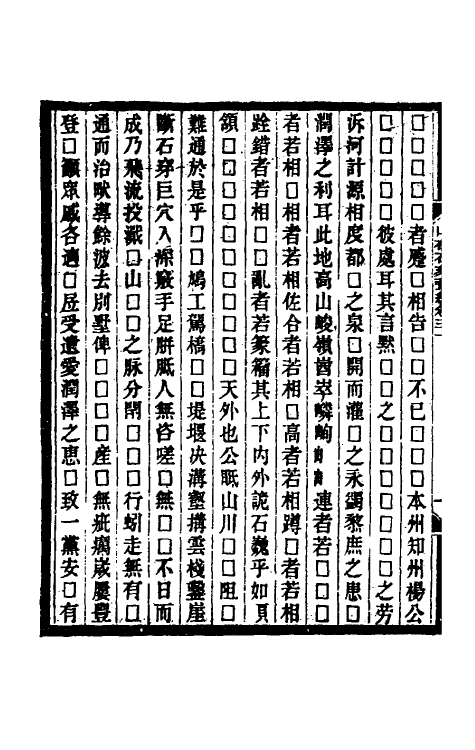 □□□□□者麈□相告□□不已□□□本州知州楊公
□□□□□彼處耳其言黙□□□之□□□□□□之劳
泝河計源相度都□之泉□開而灌□之永蠲黎庶之患□
潤澤之利耳此地高山峻嶺崷崒嶙峋 連者若□□□□
者若相□相者若相佐合者若相□高者若相蹲□者若相
銓錯者若相□□亂者若篆籀其上下内外詭石巍乎如頁
領□□□□□□□□□□□□天外也公眂山川□□阻□
難通於是乎□□鳩工駕橋□□堤堰决溝壑搆雲棧鑿崖
斷石穿巨穴入深竅手足胼胝人無咨嗟□無□□不日而
成乃飛流投澱□山□□之脉分閉□□□□行蚓走無有□
通而治畎導餘波去別墅俾□□□□産□無疵癘崴屢豐
登□顯衆戚各遂□㞐受遺愛潤澤之恵□致一黨安□有
山右石刻叢編卷三一